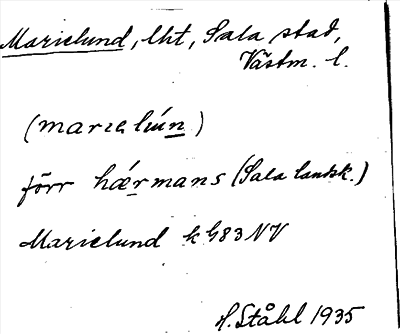 Marielund, lht, Sala stad,
Västm. l.
(marielún)
förr hǽrmans (Sala landsk.)
Marielund k G83 NV
H. Ståhl 1935